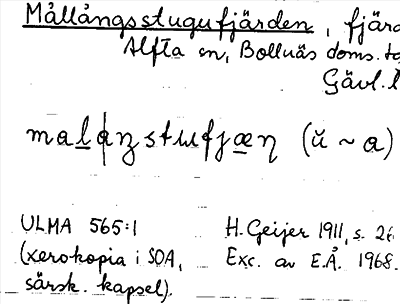 Mållångsstugufjärden, fjärd
Alfta sn, Bollnäs doms. to
Gävl. l
malaŋstufjæṇ (ŭ ~ a)
ULMA 565:1
(xerokopia i SOA,
särsk. kapsel).
H. Geijer 1911, s. 26.
Exc. av E.Å. 1968.